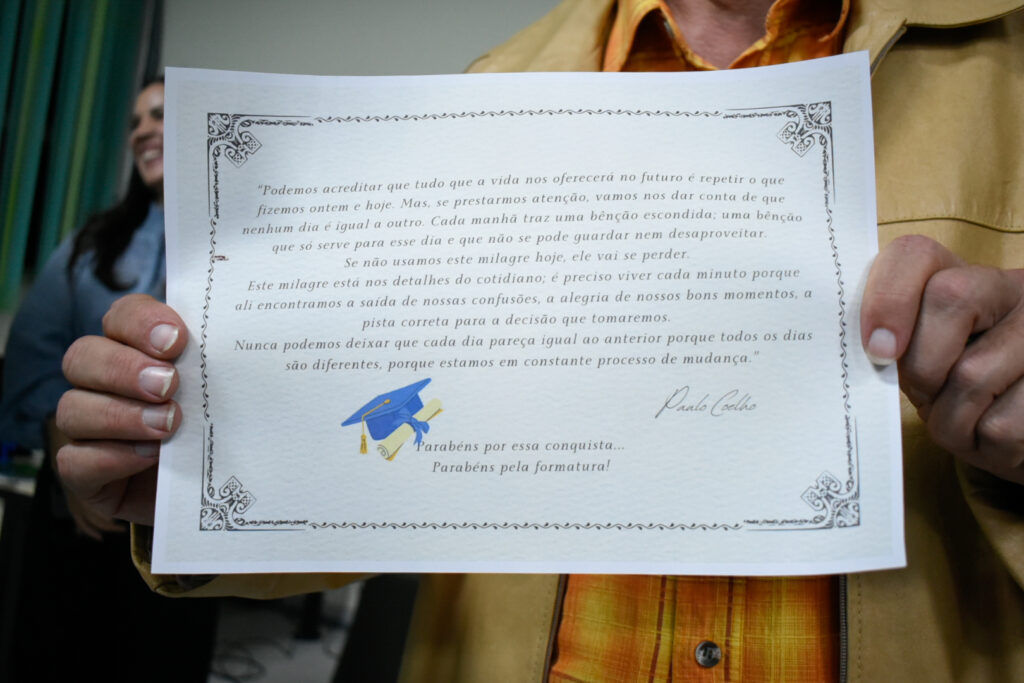 "Podemos acreditar que tudo que a vida nos oferecerá no futuro é repetir o que
fizemos ontem e hoje. Mas, se prestarmos atenção, vamos nos dar conta de que
nenhum dia é igual a outro. Cada manhã traz uma bênção escondida; uma bênção
que só serve para esse dia e que não se pode guardar nem desaproveitar.
Se não usamos este milagre hoje, ele vai se perder.
Este milagre está nos detalhes do cotidiano; é preciso viver cada minuto porque
ali encontramos a saída de nossas confusões, a alegria de nossos bons momentos, a
pista correta para a decisão que tomaremos.
Nunca podemos deixar que cada dia pareça igual ao anterior porque todos os dias
são diferentes, porque estamos em constante processo de mudança."
Paulo Coelho
Parabéns por essa conquista...
Parabéns pela formatura!